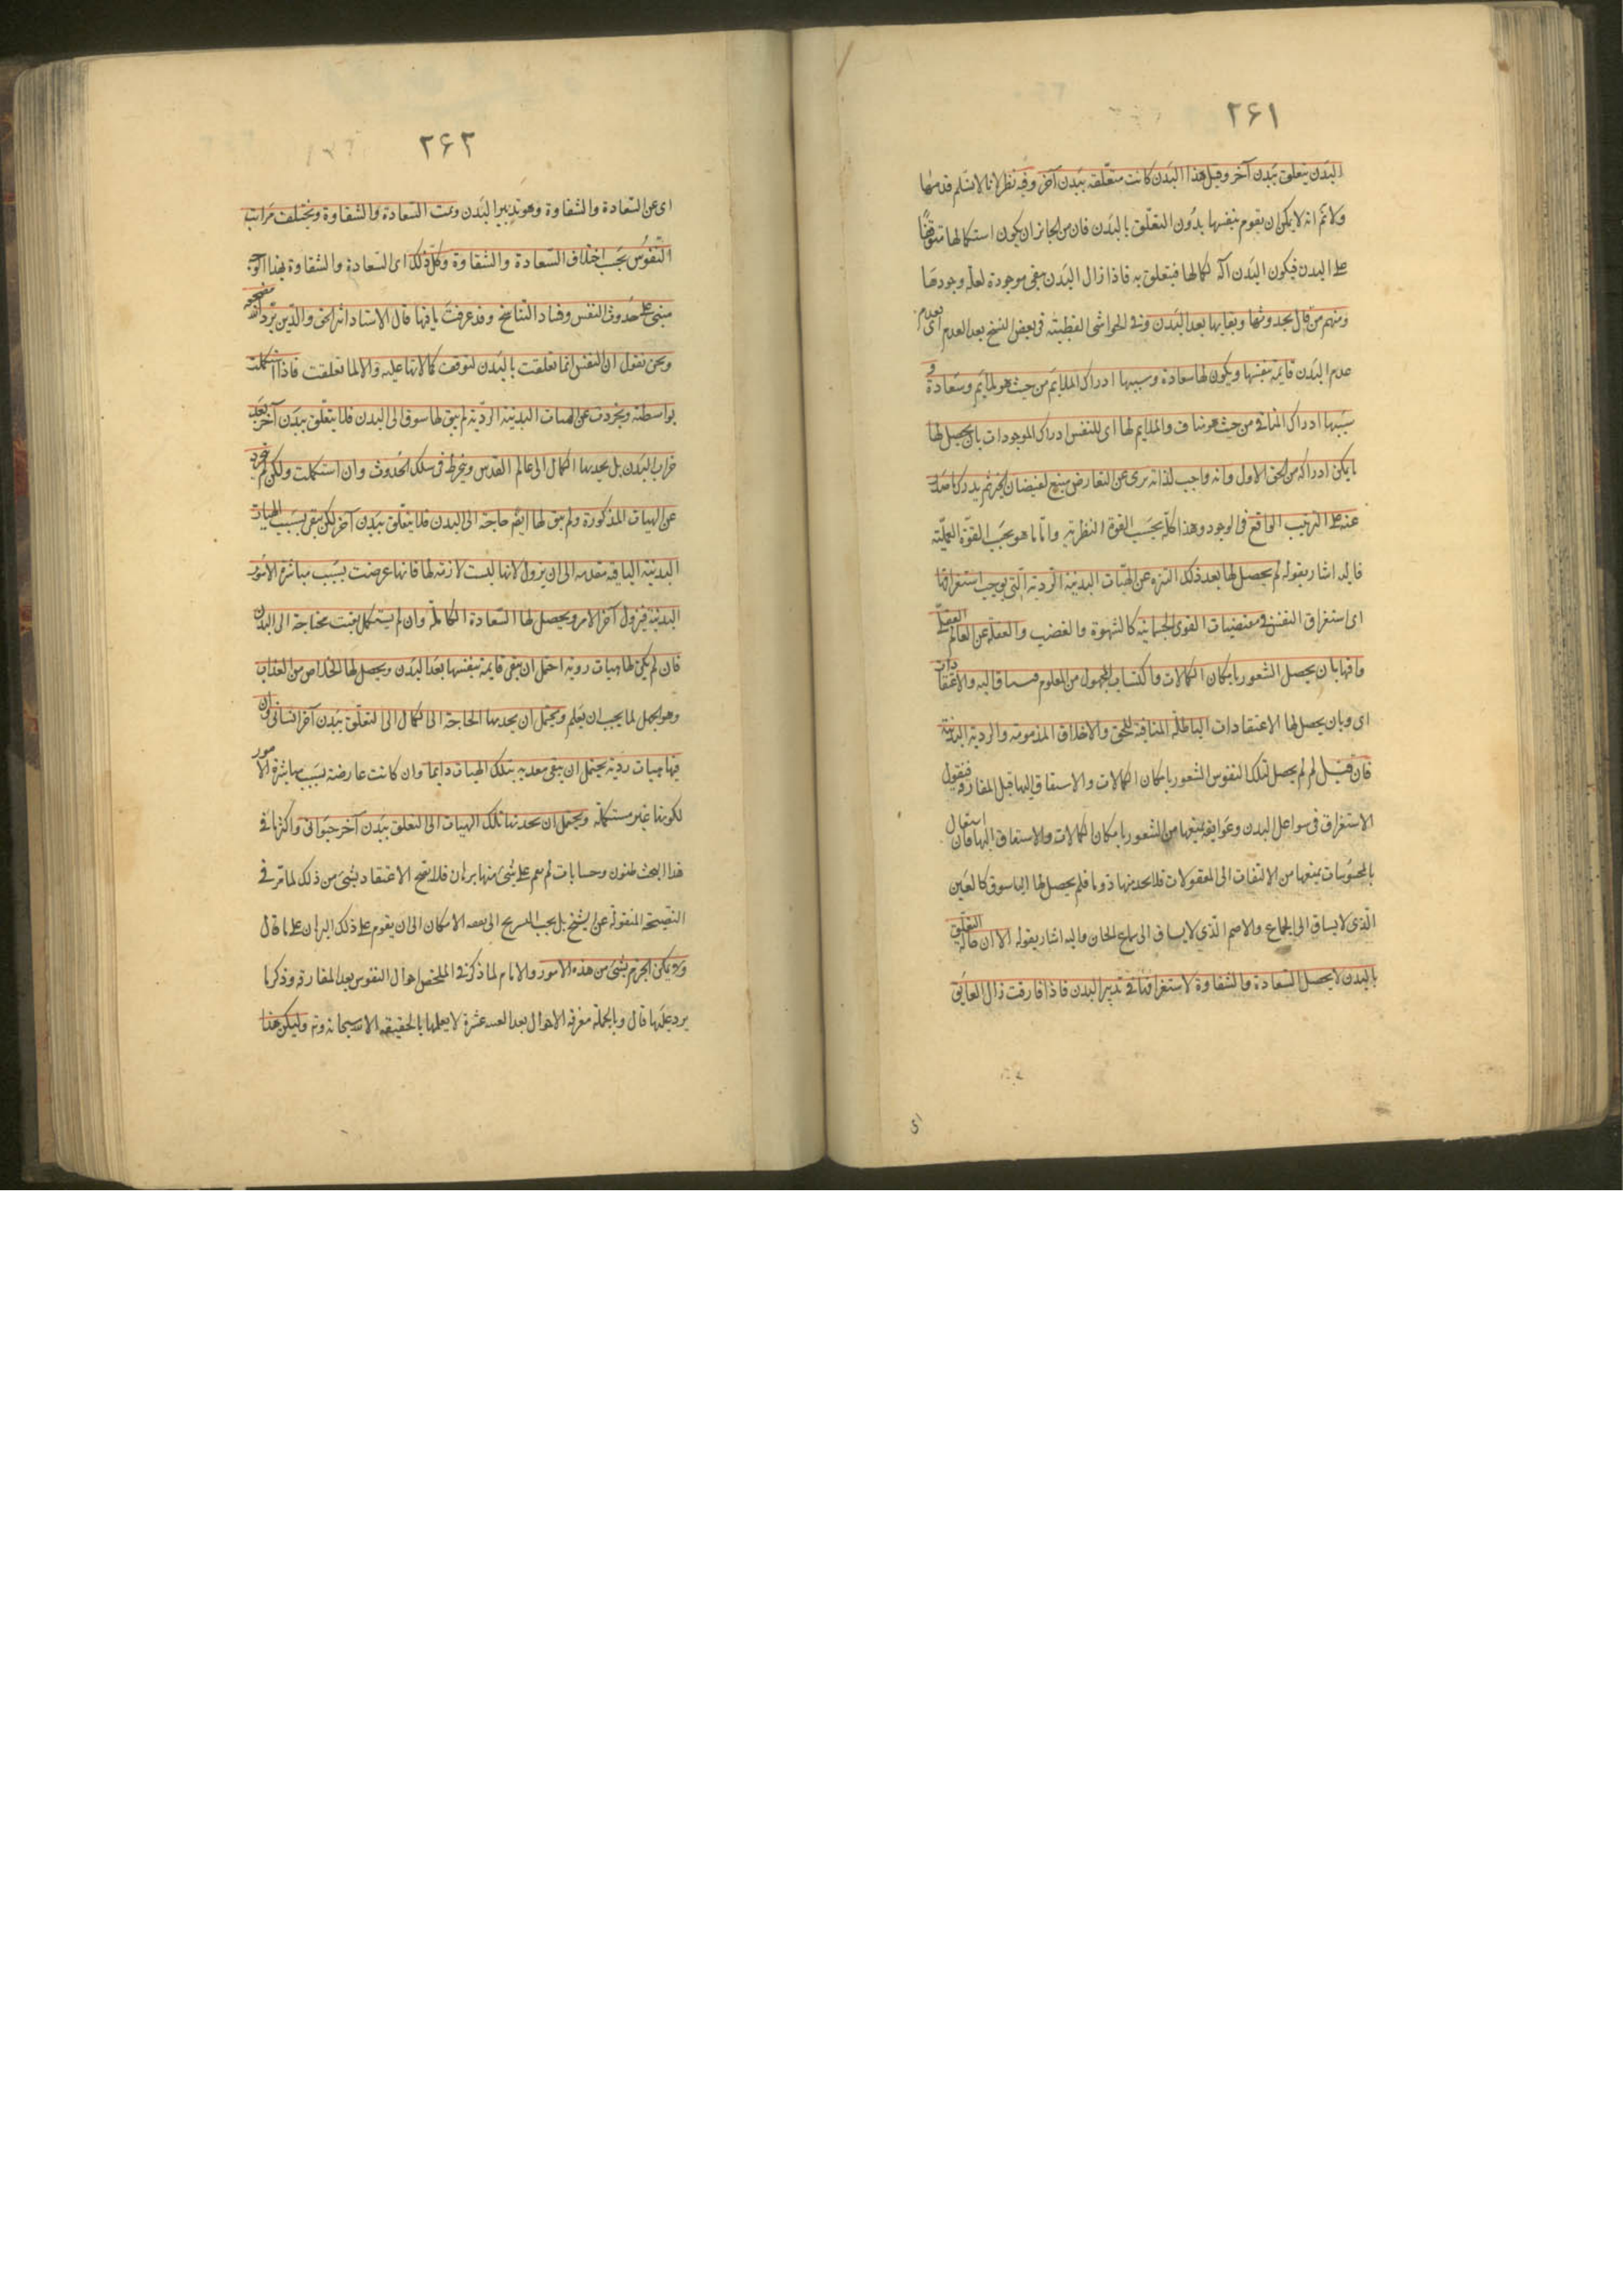 ۲۶۱
البدن يتعلق ببدن آخر وقبل هذا البدن كانت متعلقه ببدن آخر وفيه نظر لانا لا نسلم قدمها
ولا نم انه لا يمكن ان يقوم بنفسها بدون التعلق بالبدن فان من الجائز ان يكون استكمالها متوقفًا
على البدن فيكون البدن آلة لكمالها فيتعلق به فاذا زال البدن بقى موجودة لعلة وجودها
ومنهم من قال بحدوثها وبقايها بعد البدن وفى الحواشى القطبيته فى بعض النسخ بعد العدم اى بعدم
عدم البدن قايمه بنفسها ويكون لها سعادة وسببها ادراك الملايم من حيث هو ملايم وشقاوة و
سببها ادراك المنافى من حيث هو مناف والملايم لها اى للنفس ادراك الموجودات بان يحصل لها
ما يمكن ادراكه من الحق الاول وانه واجب لذاته برى عن النقايص منبع لفيضان الخير ثم يدرك ما صدر
عنه على الترتيب الواقع فى الوجود وهذا كله بحسب القوة النظرية واما ما هو بحسب القوة العملية
فاليه اشار بقوله ثم يحصل لها بعد ذلك التنزه عن الهيات البدنية الردية التى توجب استغراقها
اى استغراق النفس فى مقتضيات القوى الجسمانيه كالشهوة والغضب والغفلة عن العالم العقلى
منافيها بان يحصل الشعور بامكان الكمالات واكتساب المجهول من المعلوم فيشتاق اليه والاعتقادات
اى وبان يحصل لها الاعتقادات الباطلة المنافية للحق والاخلاق المذمومه والردية البدنية
فان قيل لم لم يحصل لتلك النفوس الشعور بامكان الكمالات والاشتياق اليها قبل المفارقة فنقول
الاستغراق فى شواغل البدن وعوايقه يمنعها من الشعور بامكان الكمالات والاشتياق اليها فان اشتغال
بالمحسوسات يمنعها من الالتفات الى المعقولات فلا يجد منها ذوقا فلم يحصل لها اليها شوق كالعنين
الذى لا يشتاق الى الجماع والاصم الذى لا يشتاق الى سماع الحان واليه اشار بقوله الا ان حالة التعلق
بالبدن لا يحصل السعادة والشقاوة لاستغراقها فى تدبير البدن فاذا فارقت زال العايق
۲۶۲
اى عن السعادة والشقاوة وهو تدبير البدن وتمت السعادة والشقاوة ويختلف مراتب
النفوس بحسب اختلاف السعادة والشقاوة وكل ذلك اى السعادة والشقاوة بهذا الوجه
مبنى على حدوث النفس وفساد التناسخ وقد عرفت ما فيها قال الاستاد اثير الحق والدين برد الله مضجعه
ونحن نقول ان النفس انما تعلقت بالبدن لتوقف كمالاتها عليه والا لما تعلقت فاذا استكملت
بواسطته وتجردت عن الهيات البدنية الردية لم يبق لها شوق الى البدن فلا يتعلق ببدن آخر بعد
خراب البدن بل يجذبها الكمال الى عالم القدس وينخرط فى سلك الحدوث وان استكملت ولكن لم تتجرد
عن الهيات المذكورة ولم يبق لها ايضم حاجة الى البدن فلا يتعلق ببدن آخر لكن يبقى بسبب الهيات
البدنية الباقيه متعذبه الى ان يزول لانها ليست لازمة لها فانها عرضت بسبب مباشرة الامور
البدنية فيزول آخر الامر ويحصل لها السعادة الكاملة وان لم يستكمل بقيت محتاجة الى البدن
فان لم يكن لها هيات ردية احتمل ان يبقى قايمة بنفسها بعد البدن ويحصل لها الخلاص من العذاب
وهو الجهل لما يجب ان يعلم ويحتمل ان يجذبها الحاجة الى الكمال الى التعلق ببدن آخر انسانى وان
فيها هيات ردية يحتمل ان يبقى معذبه بتلك الهيات دايما وان كانت عارضة بسبب مباشرة الامور
لكونها غير مستكملة ويحتمل ان يجذبها تلك الهيات الى التعلق ببدن آخر حيوانى واكثر ما فى
هذا البحث ظنون وحسابات لم يقم على شئ منها برهان فلا يصح الاعتقاد بشئ من ذلك لما مر فى
النصيحة المنقولة عن الشيخ بل يجب التسريح الى بقعه الامكان الى ان يقوم على ذلك البرهان على ما قال
ولا يمكن الجزم بشئ من هذه الامور والامام لما ذكر فى الملخص احوال النفوس بعد المفارقة وذكر ما
يرد عليها قال وبالجملة معرفة الاحوال بعد عشرة لا يعلمها بالحقيقه الا الله سبحانه وتم وليكن هذا